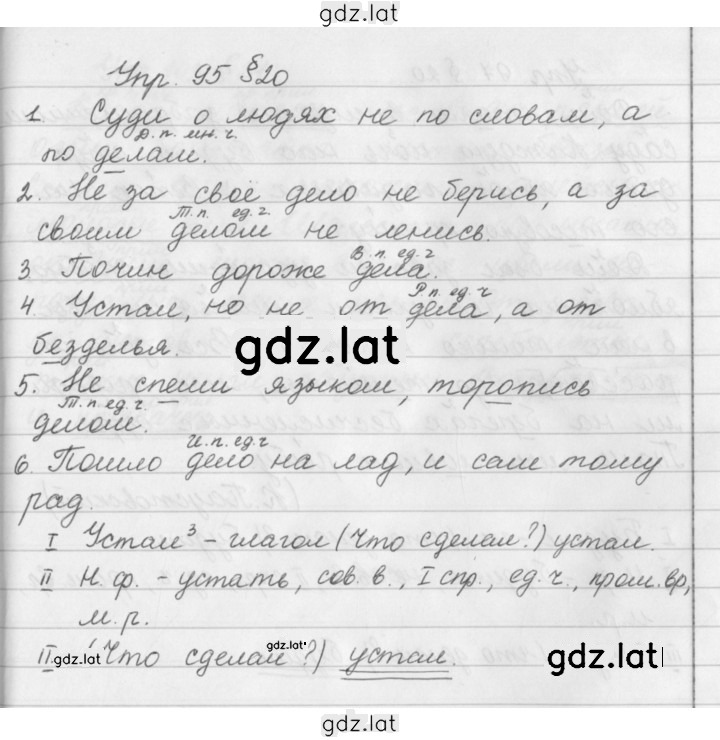 gdz.lat
Упр. 95 §20
1. Суди о людях не по словам, а
Д.п. мн.ч.
по делам.
2. Не за своё дело не берись, а за
Т.п. ед.ч.
своим делом не ленись.
В.п. ед.ч
3. Почин дороже дела.
Р.п. ед.ч
4. Устал, но не от дела, а от
безделья.
gdz.lat
5. Не спеши языком, торопись
Т.п ед.ч.
делом.
И.п. ед.ч
6. Пошло дело на лад, и сам тому
рад.
I Устал³ - глагол (Что сделал?) устал.
II Н.ф. - устать, сов.в., I спр., ед.ч., прош.вр,
м.р.
III (Что сделал?) устал.
gdz.lat
gdz.lat
gdz.lat
gdz.lat